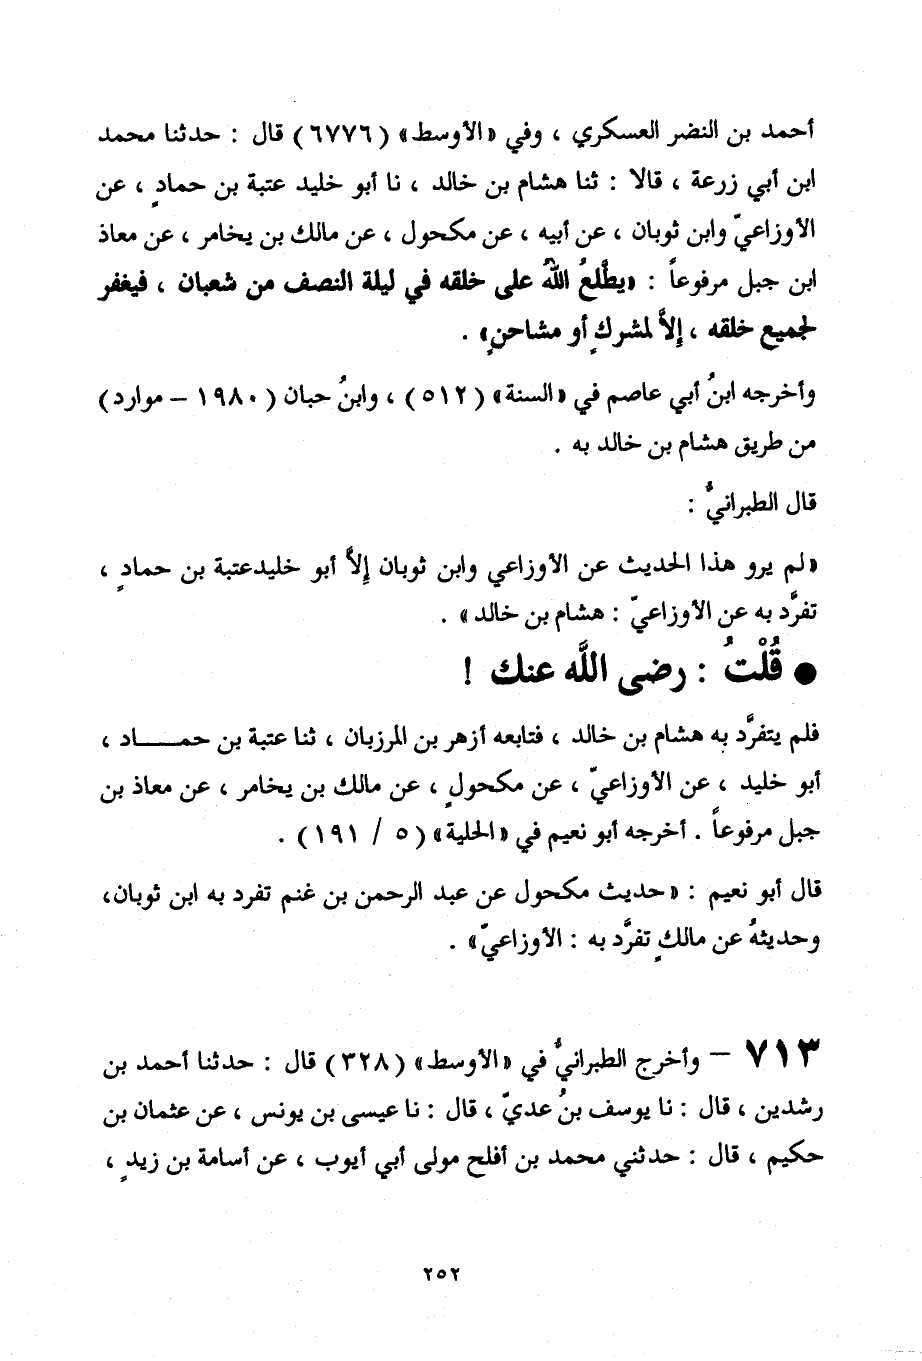 أحمد بن النضر العسكري ، وفي «الأوسط» (٦٧٧٦) قال : حدثنا محمد
ابن أبي زرعة ، قالا : ثنا هشام بن خالد ، نا أبو خليد عتبة بن حمادٍ ، عن
الأوزاعيّ وابن ثوبان ، عن أبيه ، عن مكحول ، عن مالك بن يخامر ، عن معاذ
ابن جبل مرفوعاً : «يطَّلعُ اللهُ على خلقه في ليلة النصف من شعبان ، فيغفر
لجميع خلقه ، إلاَّ لمشركٍ أو مشاحنٍ» .
وأخرجه ابنُ أبي عاصم في «السنة» (٥١٢) ، وابنُ حبان (١٩٨٠ – موارد)
من طريق هشام بن خالد به .
قال الطبرانيُّ :
«لم يرو هذا الحديث عن الأوزاعي وابن ثوبان إلاَّ أبو خليدعتبة بن حمادٍ ،
تفرَّد به عن الأوزاعيّ : هشام بن خالد» .
● قُلْتُ : رضى اللَّه عنك !
فلم يتفرَّد به هشام بن خالد ، فتابعه أزهر بن المرزبان ، ثنا عتبة بن حمـــاد ،
أبو خليد ، عن الأوزاعيّ ، عن مكحولٍ ، عن مالك بن يخامر ، عن معاذ بن
جبل مرفوعاً . أخرجه أبو نعيم في «الحلية» (٥ / ١٩١) .
قال أبو نعيم : «حديث مكحول عن عبد الرحمن بن غنم تفرد به ابن ثوبان،
وحديثهُ عن مالكٍ تفرَّد به : الأوزاعيّ» .
٧١٣ – وأخرج الطبرانيُّ في «الأوسط» (٣٢٨) قال : حدثنا أحمد بن
رشدين ، قال : نا يوسف بنُ عديّ ، قال : نا عيسى بن يونس ، عن عثمان بن
حكيم ، قال : حدثني محمد بن أفلح مولى أبي أيوب ، عن أسامة بن زيدٍ ،
٢٥٢